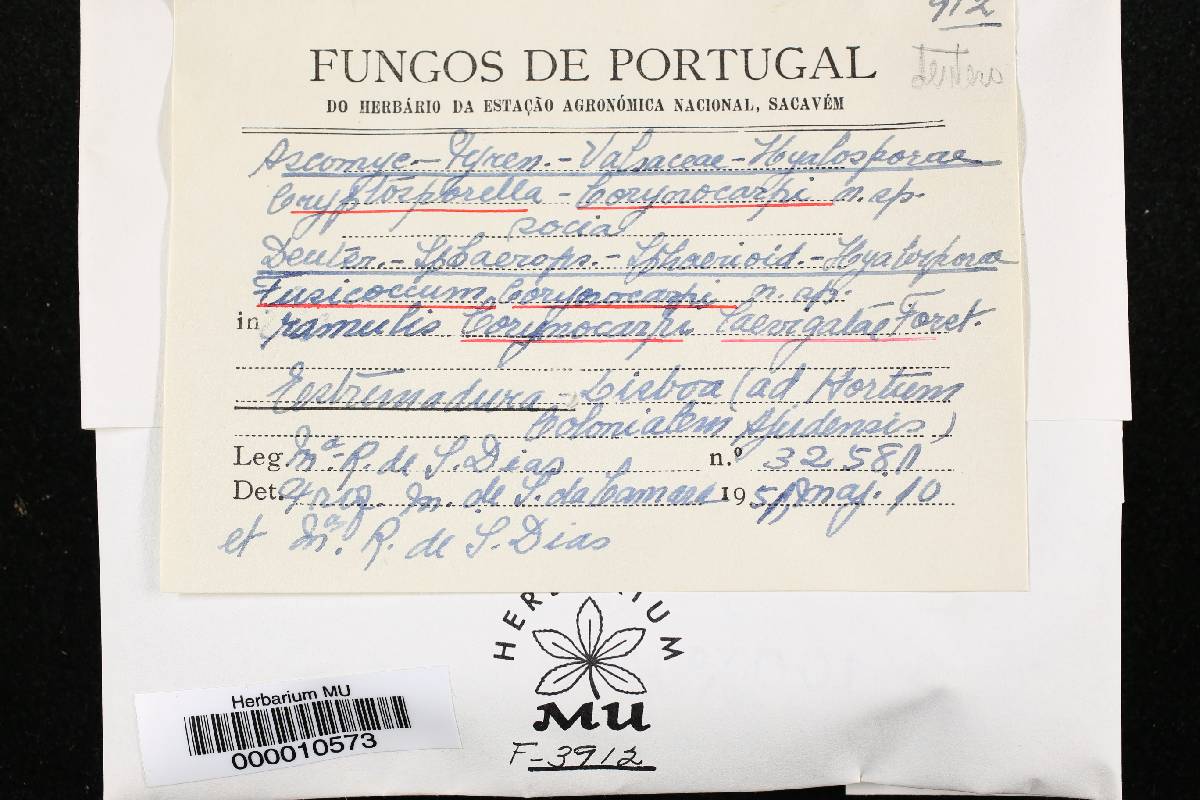 912
Deutero
FUNGOS DE PORTUGAL
DO HERBÁRIO DA ESTAÇÃO AGRONÓMICA NACIONAL, SACAVÉM
Ascomyc.- Pyren.- Valsaceae - Hyalosporae
Cryptosporella - Corynocarpi n. sp.
socia
Deuter.- Sphaerops.- Sphaerioid.- Hyalosporae
Fusicoccum Corynocarpi n. sp.
in ramulis Corynocarpi laevigatae Forst.
Estremadura - Lisboa (ad Hortum
Colonialem Ajudensis)
Leg. Mª. R. de S. Dias n.º 32581
Det. M. de S. da Camara 1951, maj. 10
et Mª. R. de S. Dias
HERBARIUM
MU
F-3912
Herbarium MU
000010573